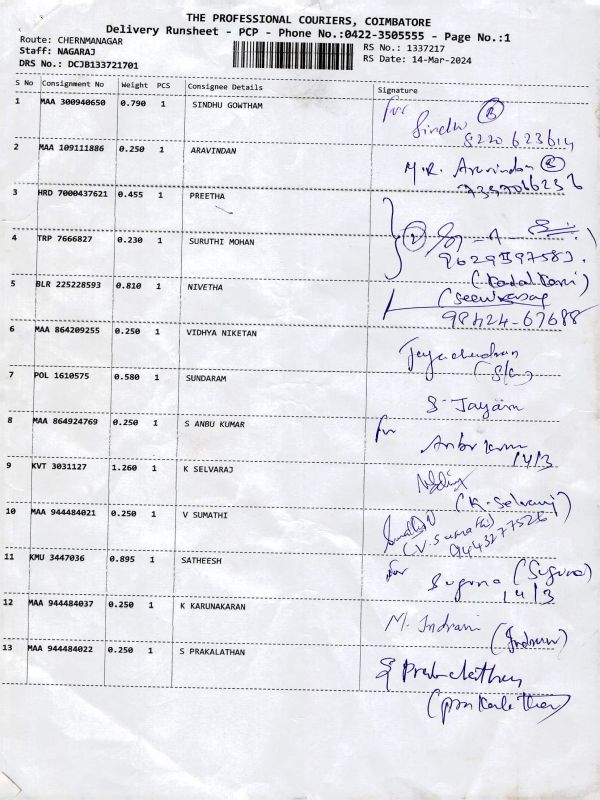 THE PROFESSIONAL COURIERS, COIMBATORE
Delivery Runsheet - PCP - Phone No.:0422-3505555 - Page No.:1
Route: CHERNMANAGAR
RS No.: 1337217
Staff: NAGARAJ
RS Date: 14-Mar-2024
DRS No.: DCJB133721701
S No Consignment No Weight PCS Consignee Details Signature
1 MAA 300940650 0.790 1 SINDHU GOWTHAM for
Sindhu
8220623614
2 MAA 109111886 0.250 1 ARAVINDAN
M.R. Aravindan
3 HRD 7000437621 0.455 1 PREETHA
4 TRP 7666827 0.230 1 SURUTHI MOHAN
5 BLR 225228593 0.810 1 NIVETHA
98424-67688
6 MAA 864209255 0.250 1 VIDHYA NIKETAN
Jeyachandran
7 POL 1610575 0.580 1 SUNDARAM
S Jayam
8 MAA 864924769 0.250 1 S ANBU KUMAR for
Anbu kumar
14/3
9 KVT 3031127 1.260 1 K SELVARAJ
(K. Selvaraj)
10 MAA 944484021 0.250 1 V SUMATHI
(V. Sumathi)
9443277526
11 KMU 3447036 0.895 1 SATHEESH for
Suguna (Suguna)
14/3
12 MAA 944484037 0.250 1 K KARUNAKARAN
M. Indrani (Indrani)
13 MAA 944484022 0.250 1 S PRAKALATHAN
S Prakalathan
(prakalathan)